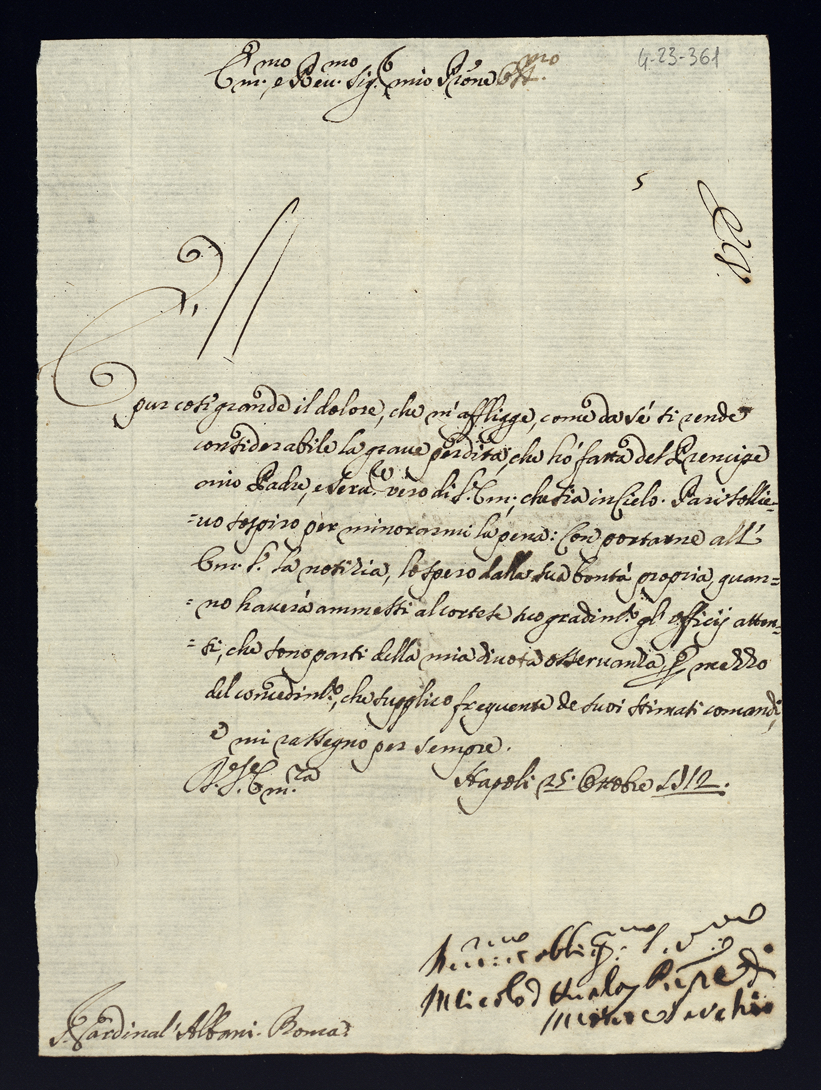 4-23-361
Em.mo e Rev.mo Sig.r mio P̃rone
5
E' pur così grande il dolore, che m'affligge, come da sé si rende
considerabile la grave perdita, che hò fatta del Prencipe
mio Padre, e Serv.re vero di V. Em., che sia in Cielo. Pari sollie-
=vo sospiro per minorarmi la pena: Con portarne all'
Em. V. la notizia, lo spero dalla sua bontà propria, quan=
=no haverà ammessi al cortese suo gradim.to gl'officij atten-
=ti, che sono parti della mia divota osservanza p mezzo
del concedim.to, che supplico frequente de suoi stimati comandi,
e mi rassegno per sempre.
V.S. Em.za Napoli 25. Ottobre 1712.
obblig.mo
S. Cardinal' Albani. Roma